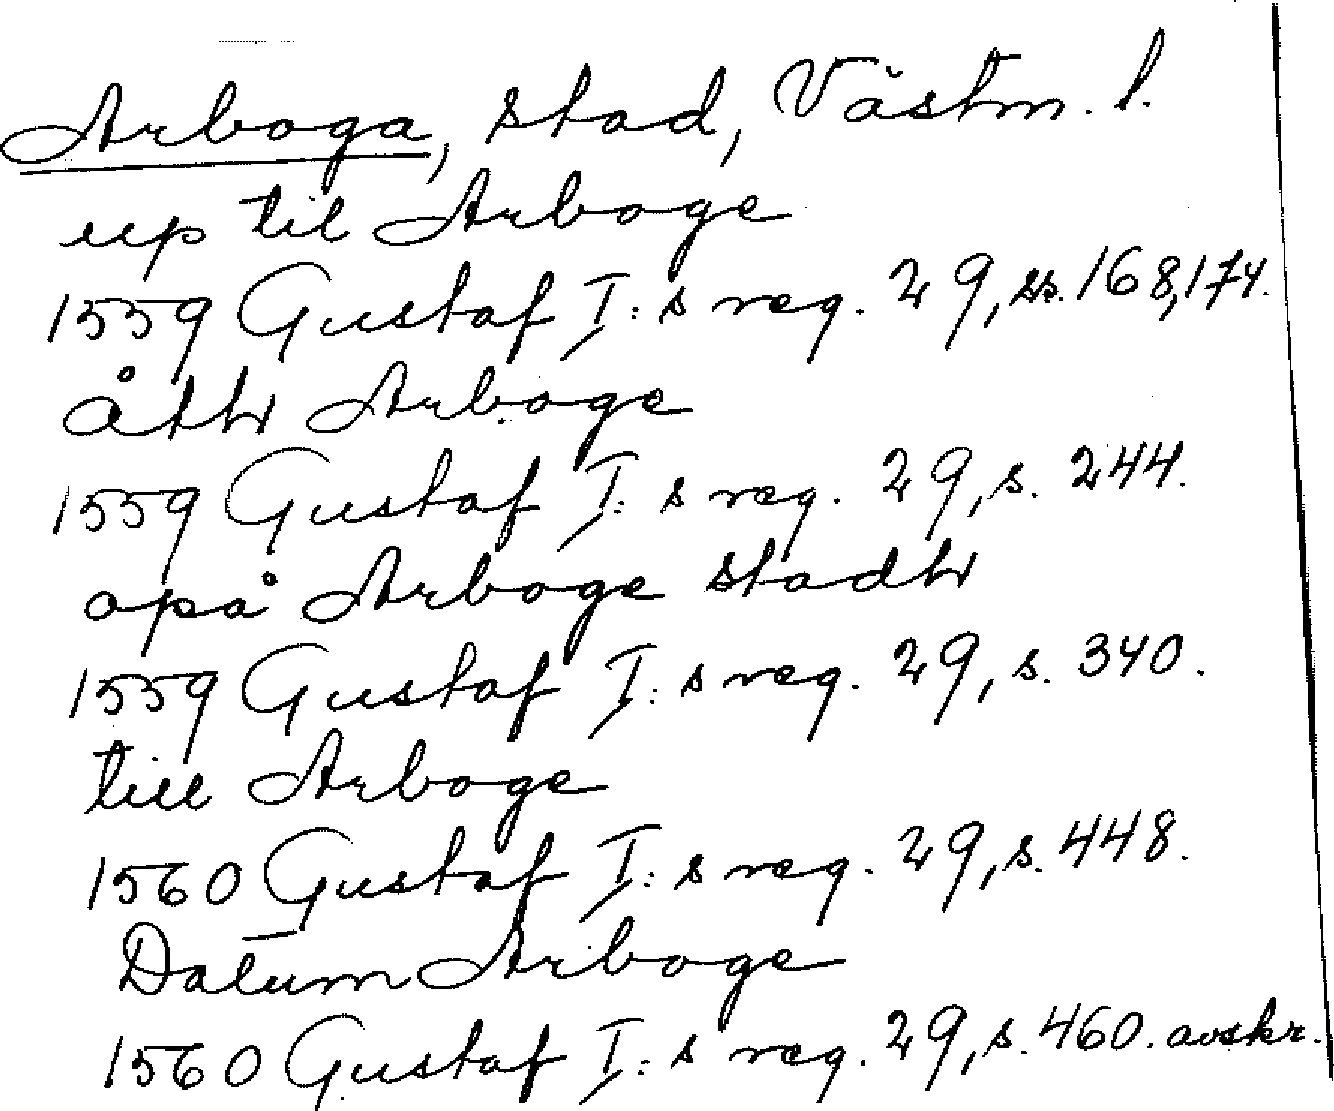 Arboga, stad, Västm. l.
up til Arboge
1559 Gustaf I:s reg. 29, ss. 168, 174.
åth Arboge
1559 Gustaf I:s reg. 29, s. 244.
opå Arboge stadh
1559 Gustaf I:s reg. 29, s. 340.
till Arboge
1560 Gustaf I:s reg. 29, s. 448.
Datum Arboge
1560 Gustaf I:s reg. 29, s. 460. avskr.